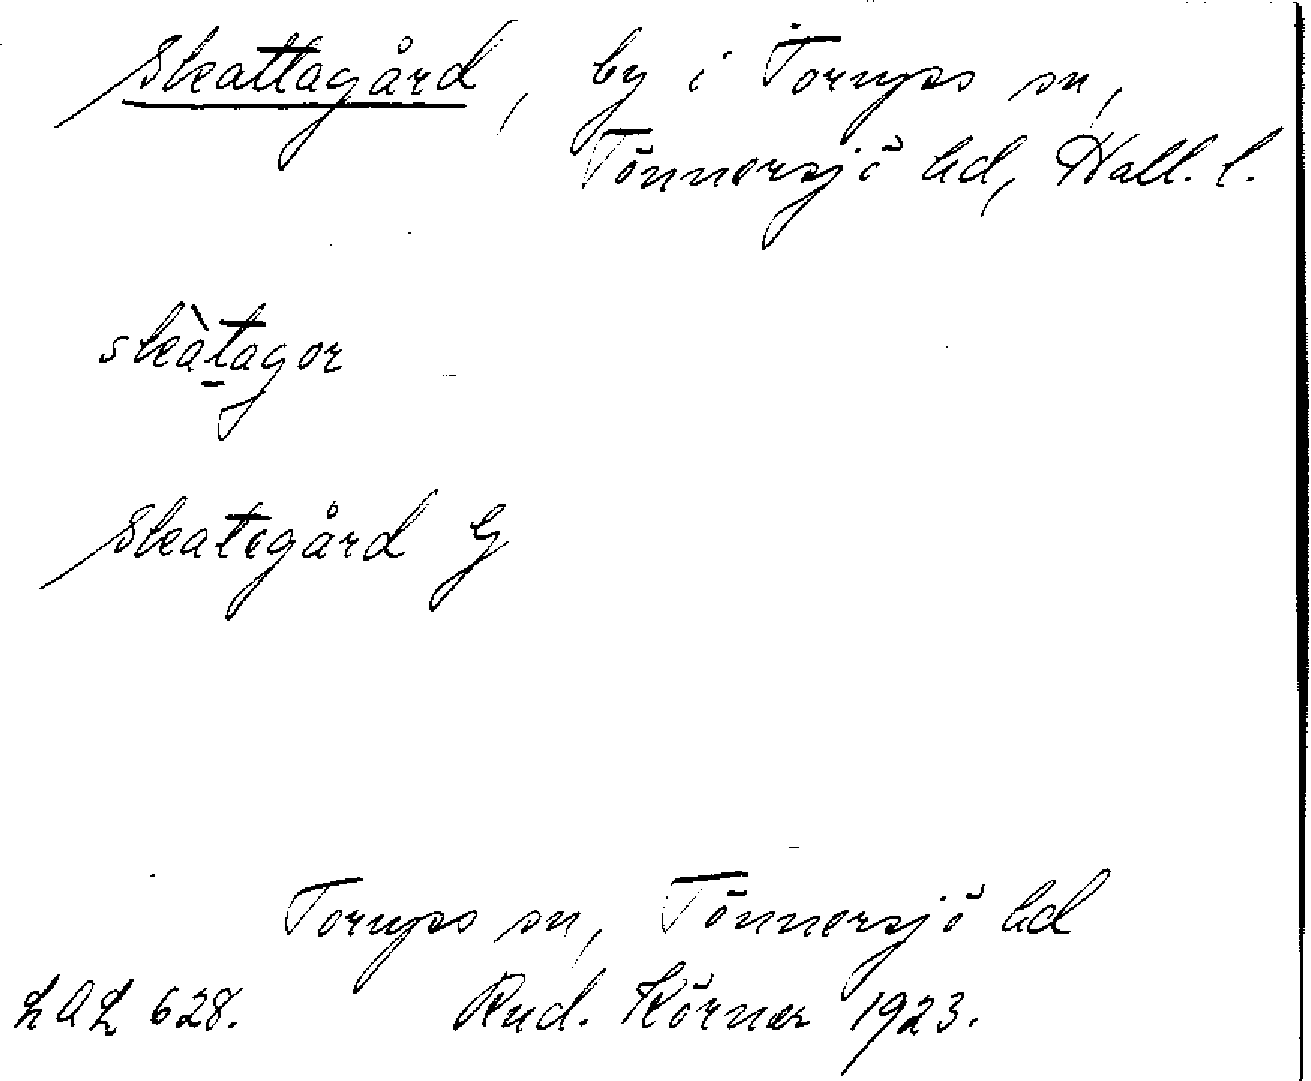 Skattagård, by i Torups sn,
Tönnersjö hd, Hall. l.
skàtagor
Skategård G
Torups sn, Tönnersjö hd
LAL 628. Rud. Körner 1923.